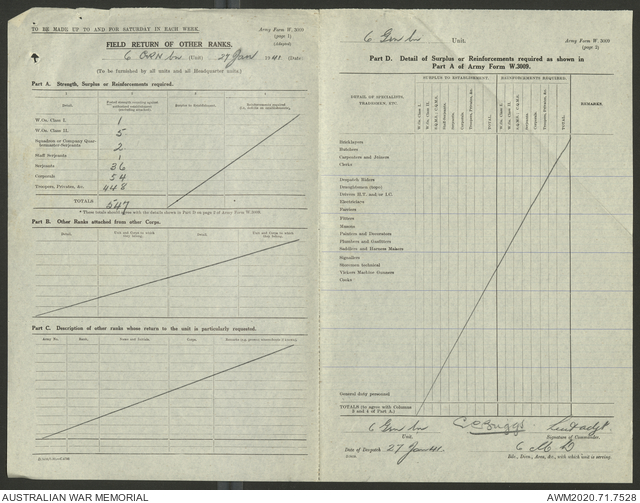 TO BE MADE UP TO AND FOR SATURDAY IN EACH WEEK.
Army Form W. 3009
(page 1)
(Adapted)
FIELD RETURN OF OTHER RANKS.
6 (Unit) 27 Jan 1941 (Date)
(To be furnished by all units and all Headquarter units.)
Part A. Strength, Surplus or Reinforcements required.
Detail.
Surplus to Establishment.
W.Os. Class I. 1
W.Os. Class II. 5
Squadron or Company Quar-
termaster-Serjeants 2
Staff Serjeants 1
Serjeants 36
Corporals 54
Troopers, Privates, &c. 448
TOTALS 547
* These totals should agree with the details shown in Part D on page 2 of Army Form W.3009.
Part B. Other Ranks attached from other Corps.
Detail.
Unit and Corps to which they belong.
Detail.
Unit and Corps to which they belong.
Part C. Description of other ranks whose return to the unit is particularly requested.
Army No.
Rank.
Name and Initials.
Corps.
6 Unit.
Army Form W. 3009
(page 2)
Part D. Detail of Surplus or Reinforcements required as shown in
Part A of Army Form W.3009.
DETAIL OF SPECIALISTS,
TRADESMEN, ETC.
SURPLUS TO ESTABLISHMENT.
REINFORCEMENTS REQUIRED.
W.Os. Class I.
W.Os. Class II.
C.Q.M.S.
Staff-Serjeants.
Serjeants.
Corporals.
Troopers, Privates, &c.
TOTAL.
W.Os. Class I.
W.Os. Class II.
Serjeants.
Corporals.
Troopers, Privates, &c.
TOTAL.
REMARKS.
Bricklayers
Butchers
Carpenters and Joiners
Clerks
Despatch Riders
Draughtsmen (topo)
Drivers H.T. and/or I.C.
Electricians
Farriers
Fitters
Masons
Painters and Decorators
Plumbers and Gasfitters
Saddlers and Harness Makers
Signallers
Storemen technical
Vickers Machine Gunners
Cooks
General duty personnel
TOTALS (to agree with Columns
3 and 4 of Part A.)
6
Unit.
Briggs Lieut adjt
Signature of Commander.
Date of Despatch 27 Jan 41
6 M D
Bde., Divn., Area, &c., with which unit is serving.
AUSTRALIAN WAR MEMORIAL
AWM2020.71.7528